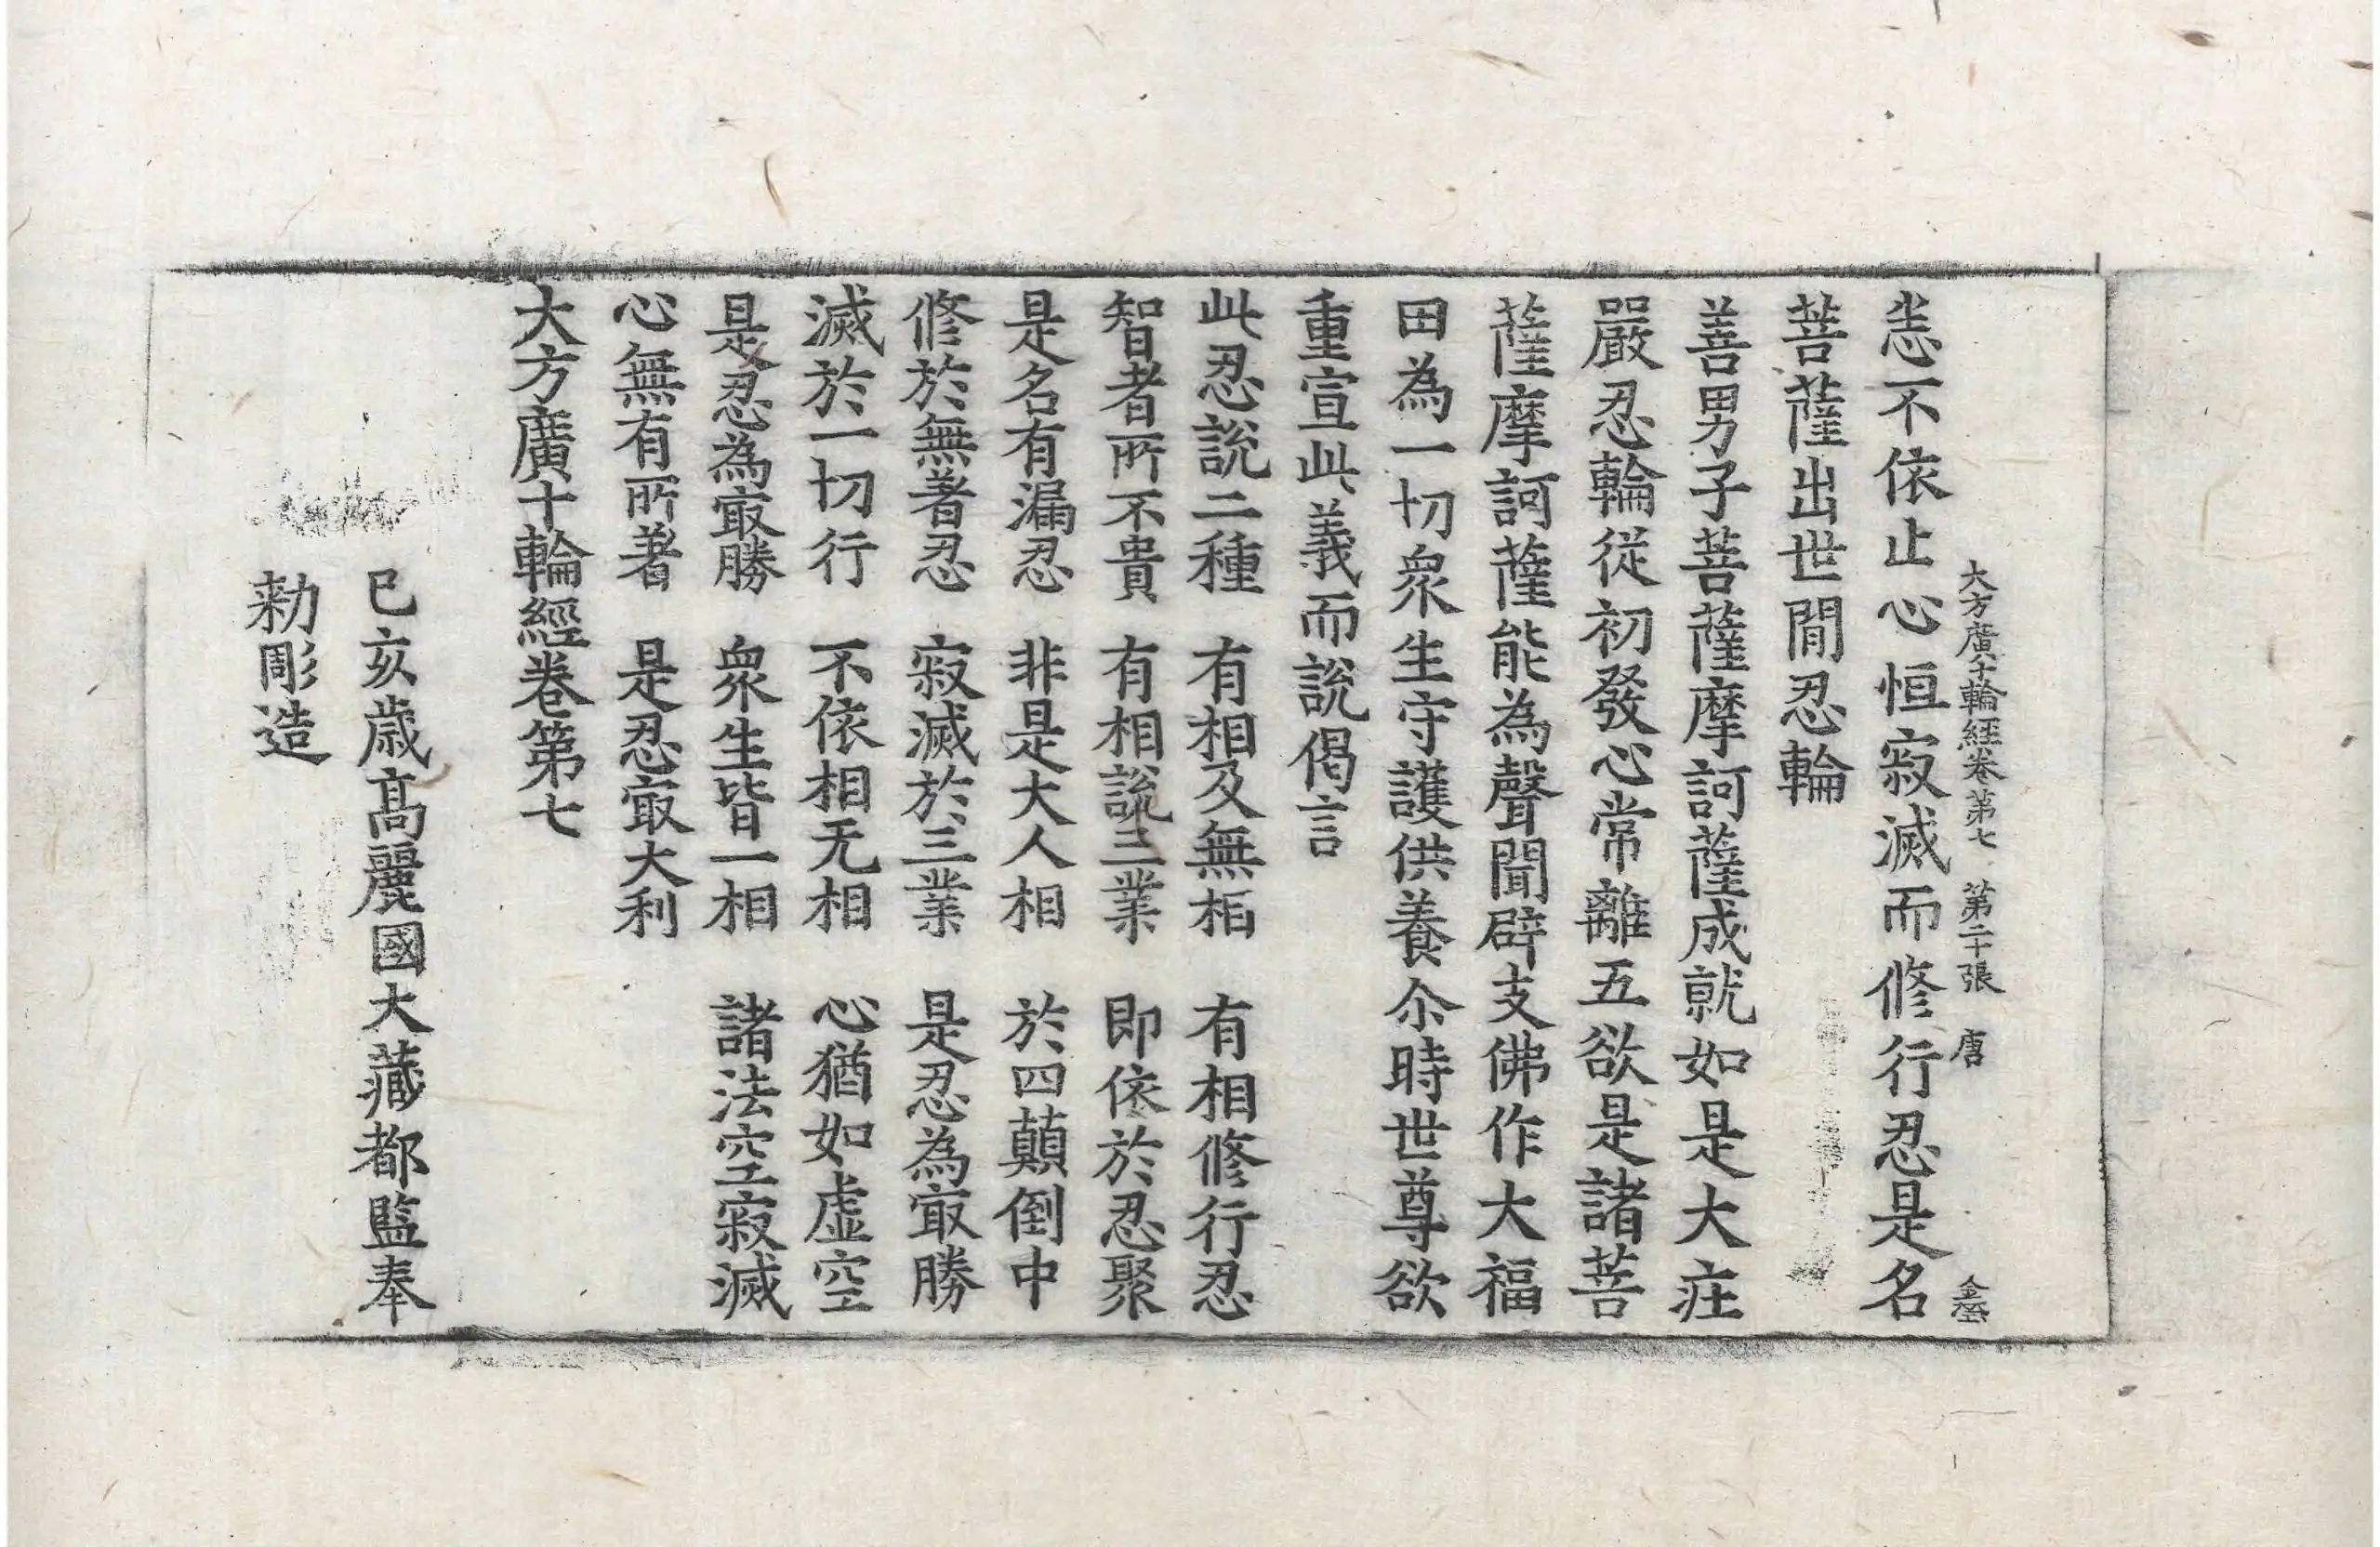 大方廣十輪經卷第七 第二十張 唐
恙不依止心恒寂滅而修行忍是名
菩薩出世閒忍輪
善男子菩薩摩訶薩成就如是大庄
嚴忍輪從初發心常離五欲是諸菩
薩摩訶薩能為聲聞辟支佛作大福
田為一切衆生守護供養尒時世尊欲
重宣此義而說偈言
此忍說二種 有相及無相 有相修行忍
智者所不貴 有相說三業 即依於忍聚
是名有漏忍 非是大人相 於四顛倒中
修於無著忍 寂滅於三業 是忍為㝡勝
滅於一切行 不依相无相 心猶如虛空
是忍為㝡勝 衆生皆一相 諸法空寂滅
心無有所著 是忍㝡大利
大方廣十輪經卷第七
己亥歲高麗國大藏都監奉
勑彫造